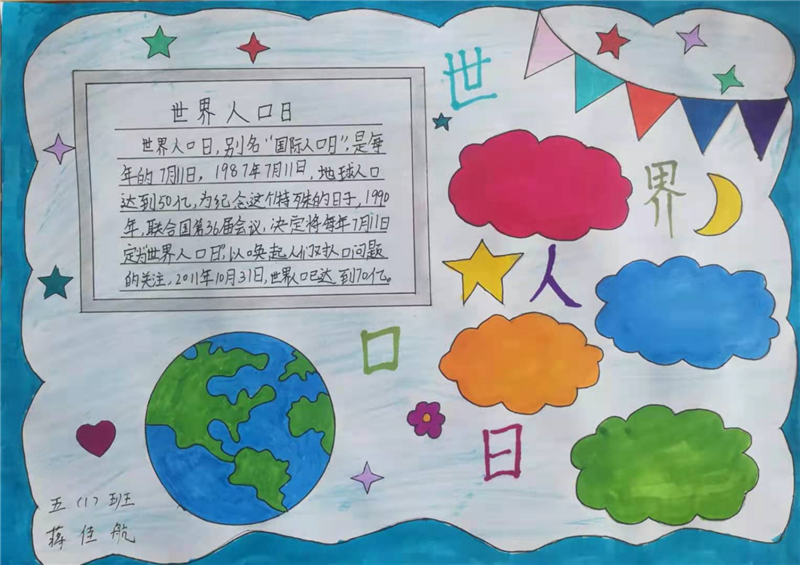 世界人口日
世界人口日，别名“国际人口日”，是每
年的7月11日。1987年7月11日，地球人口
达到50亿，为纪念这个特殊的日子，1990
年，联合国第36届会议，决定将每年7月11日
定为“世界人口日”，以唤起人们对人口问题
的关注。2011年10月31日，世界人口已达到70亿。
世
界
人
口
日
五（1）班
蒋佳航